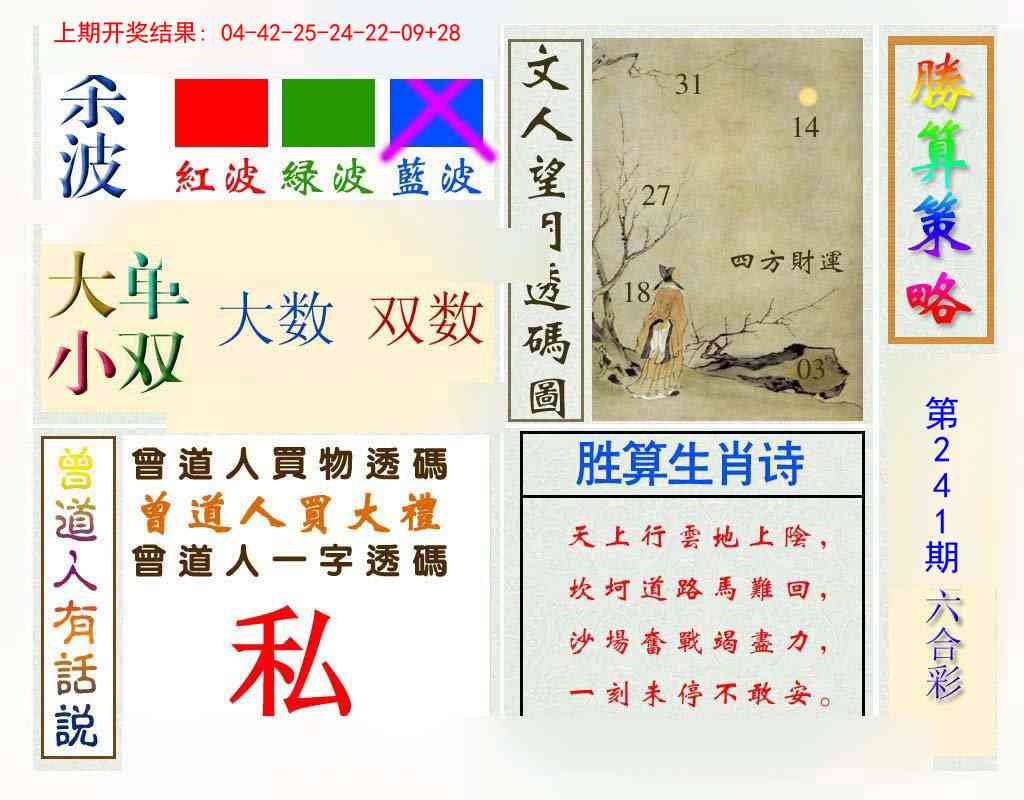 上期开奖结果: 04-42-25-24-22-09+28
杀波
紅波 緑波 藍波
大单
小双
大数 双数
文人望月透碼圖
31
14
27
四方財運
18
03
勝算策略
第241期
六合彩
曾道人有話説
曾道人買物透碼
曾道人買大禮
曾道人一字透碼
私
胜算生肖诗
天上行雲地上陰,
坎坷道路馬難回,
沙場奮戰竭盡力,
一刻未停不敢安。